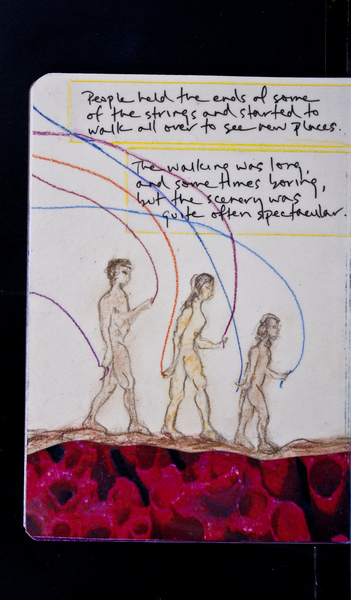 People held the ends of some
of the strings and started to
walk all over to see new places.
The walking was long,
and sometimes boring,
but the scenery was
quite often spectacular.